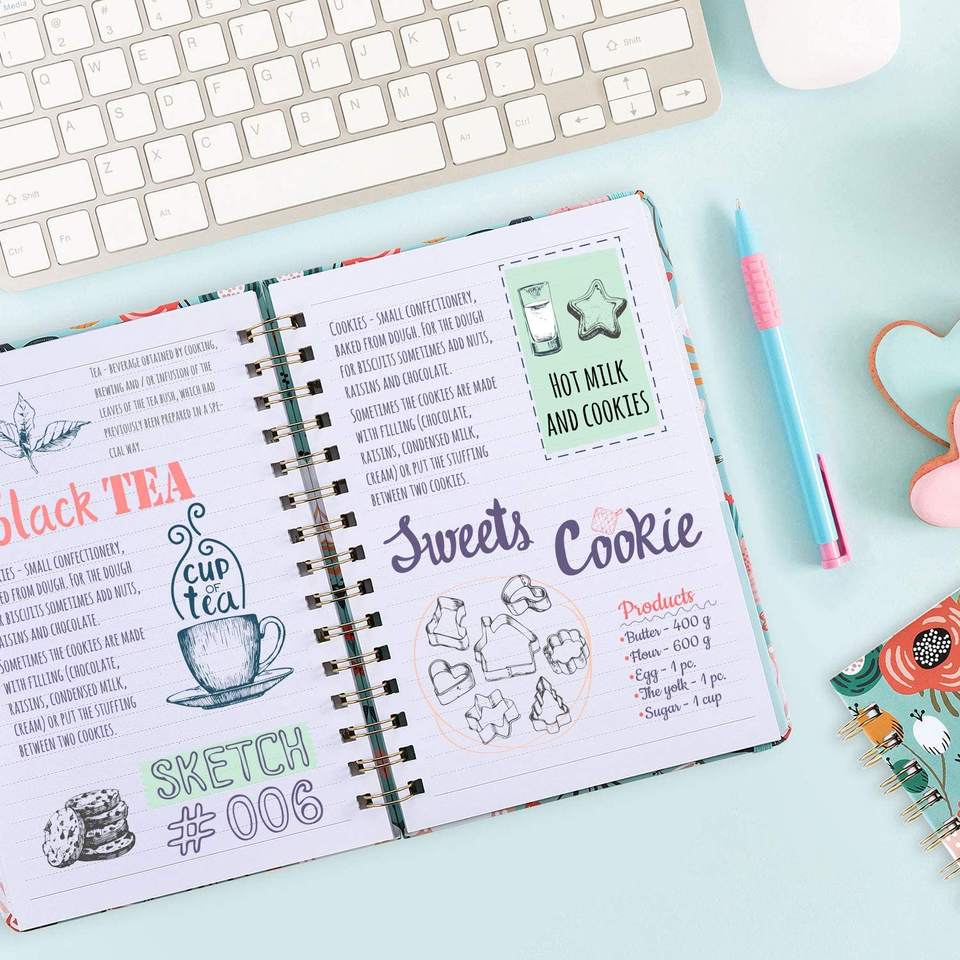 Media
@
2
#
3
$
4
Q W E R
A S D F G H J K L
Shift
Z X C V B N M
< ,
> .
? /
Shift
Ctrl
Fn
Alt
Alt
Ctrl
Tea - beverage obtained by cooking,
brewing and / or infusion of the
leaves of the tea bush, which had
previously been prepared in a spe-
cial way.
black TEA
ies - small confectionery,
ed from dough. For the dough
r biscuits sometimes add nuts,
aisins and chocolate.
Sometimes the cookies are made
with filling (chocolate,
raisins, condensed milk,
cream) or put the stuffing
between two cookies.
cup
of
tea
SKETCH
# 006
Cookies - small confectionery,
baked from dough. For the dough
for biscuits sometimes add nuts,
raisins and chocolate.
Sometimes the cookies are made
with filling (chocolate,
raisins, condensed milk,
cream) or put the stuffing
between two cookies.
Hot milk
and cookies
Sweets Cookie
Products
•Butter - 400 g
•Flour - 600 g
•Egg - 1 pc.
•The yolk - 1 pc.
•Sugar - 1 cup